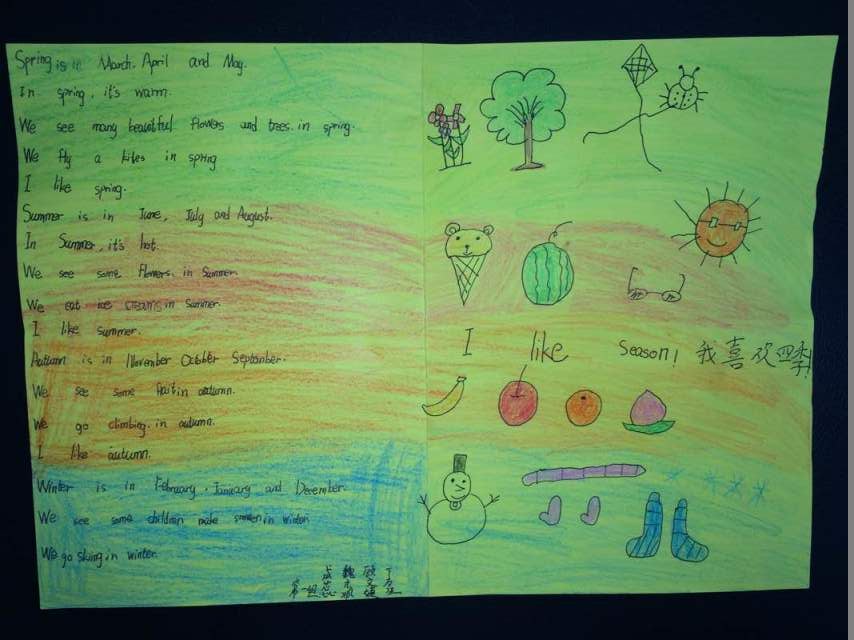 Spring is in March. April and May.
In spring, it's warm.
We see many beautiful flowers and trees. in spring.
We fly a kites in spring
I like spring.
Summer is in June, July and August.
In Summer, it's hot.
We see some flowers. in Summer.
We eat ice creams in Summer.
I like summer.
Autumn is in November October September.
We see some fruit in autumn.
We go climbing. in autumn.
I like autumn.
Winter is in February, January and December.
We see some children make in winter.
We go skiing. in winter.
I like Season! 我喜欢四季!
第一组